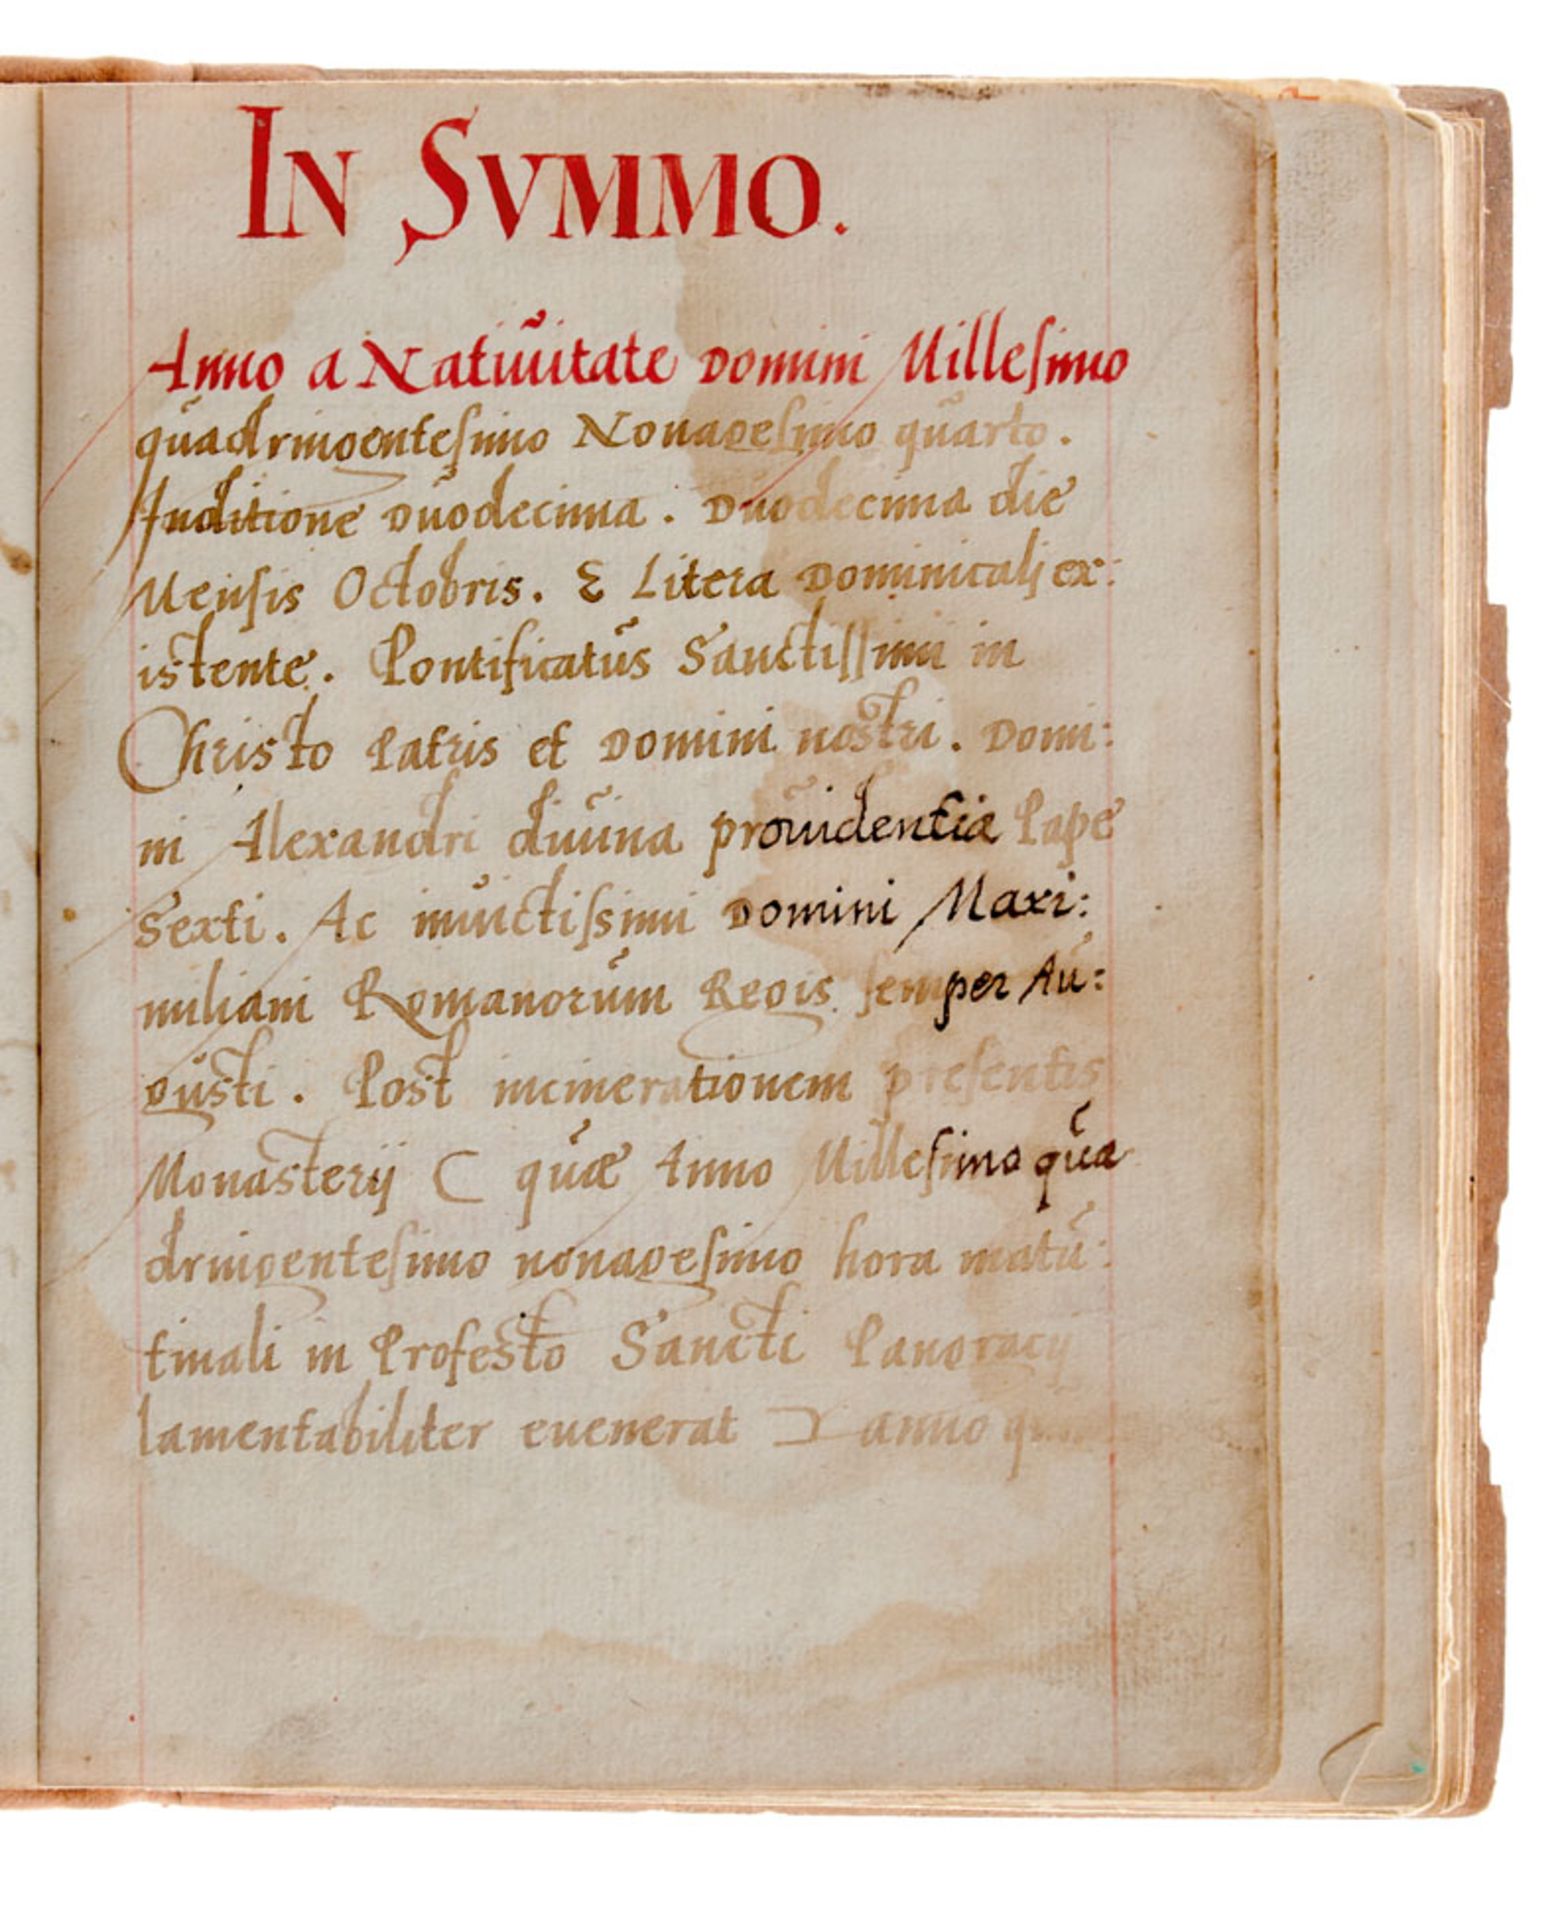 IN SVMMO.
Anno a Natiũitate Domini Millesimo
qũadringentesimo Nonagesimo qũarto.
Inditione Dũodecima. Dũodecima die
Mensis Octobris. E Litera Dominicali ex:
istente. Pontificatũs Sanctissimi in
Christo Patris et Domini nostri. Domi:
ni Alexandri diũina proũidentia Pape
Sexti. Ac inũictissimi Domini Maxi:
miliani Romanorũm Regis semper Aũ:
gũsti. Post incinerationem presentis
Monasterij ( qũæ Anno Millesimo qũa
dringentesimo nonagesimo hora matũ:
tinali in Profesto Sancti Pangracij
lamentabiliter euenerat ) anno